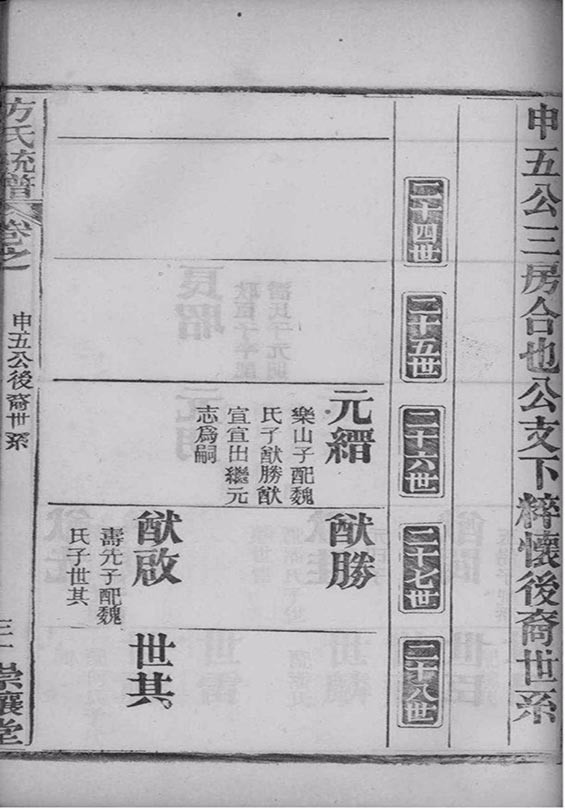 申五公三房合也公支下粹懷後裔世系
二十四世
二十五世
二十六世
二十七世
二十八世
元縉
樂山子配魏
氏子猷勝猷
宣宣出繼元
志爲嗣
猷勝
猷啟
壽先子配魏
氏子世其
世其
方氏統譜卷之
申五公後裔世系
三十
崇讓堂